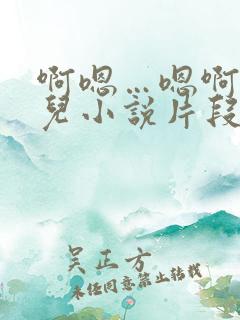 啊嗯…嗯啊
兒小說片段
吴正方
未经同意禁止转载